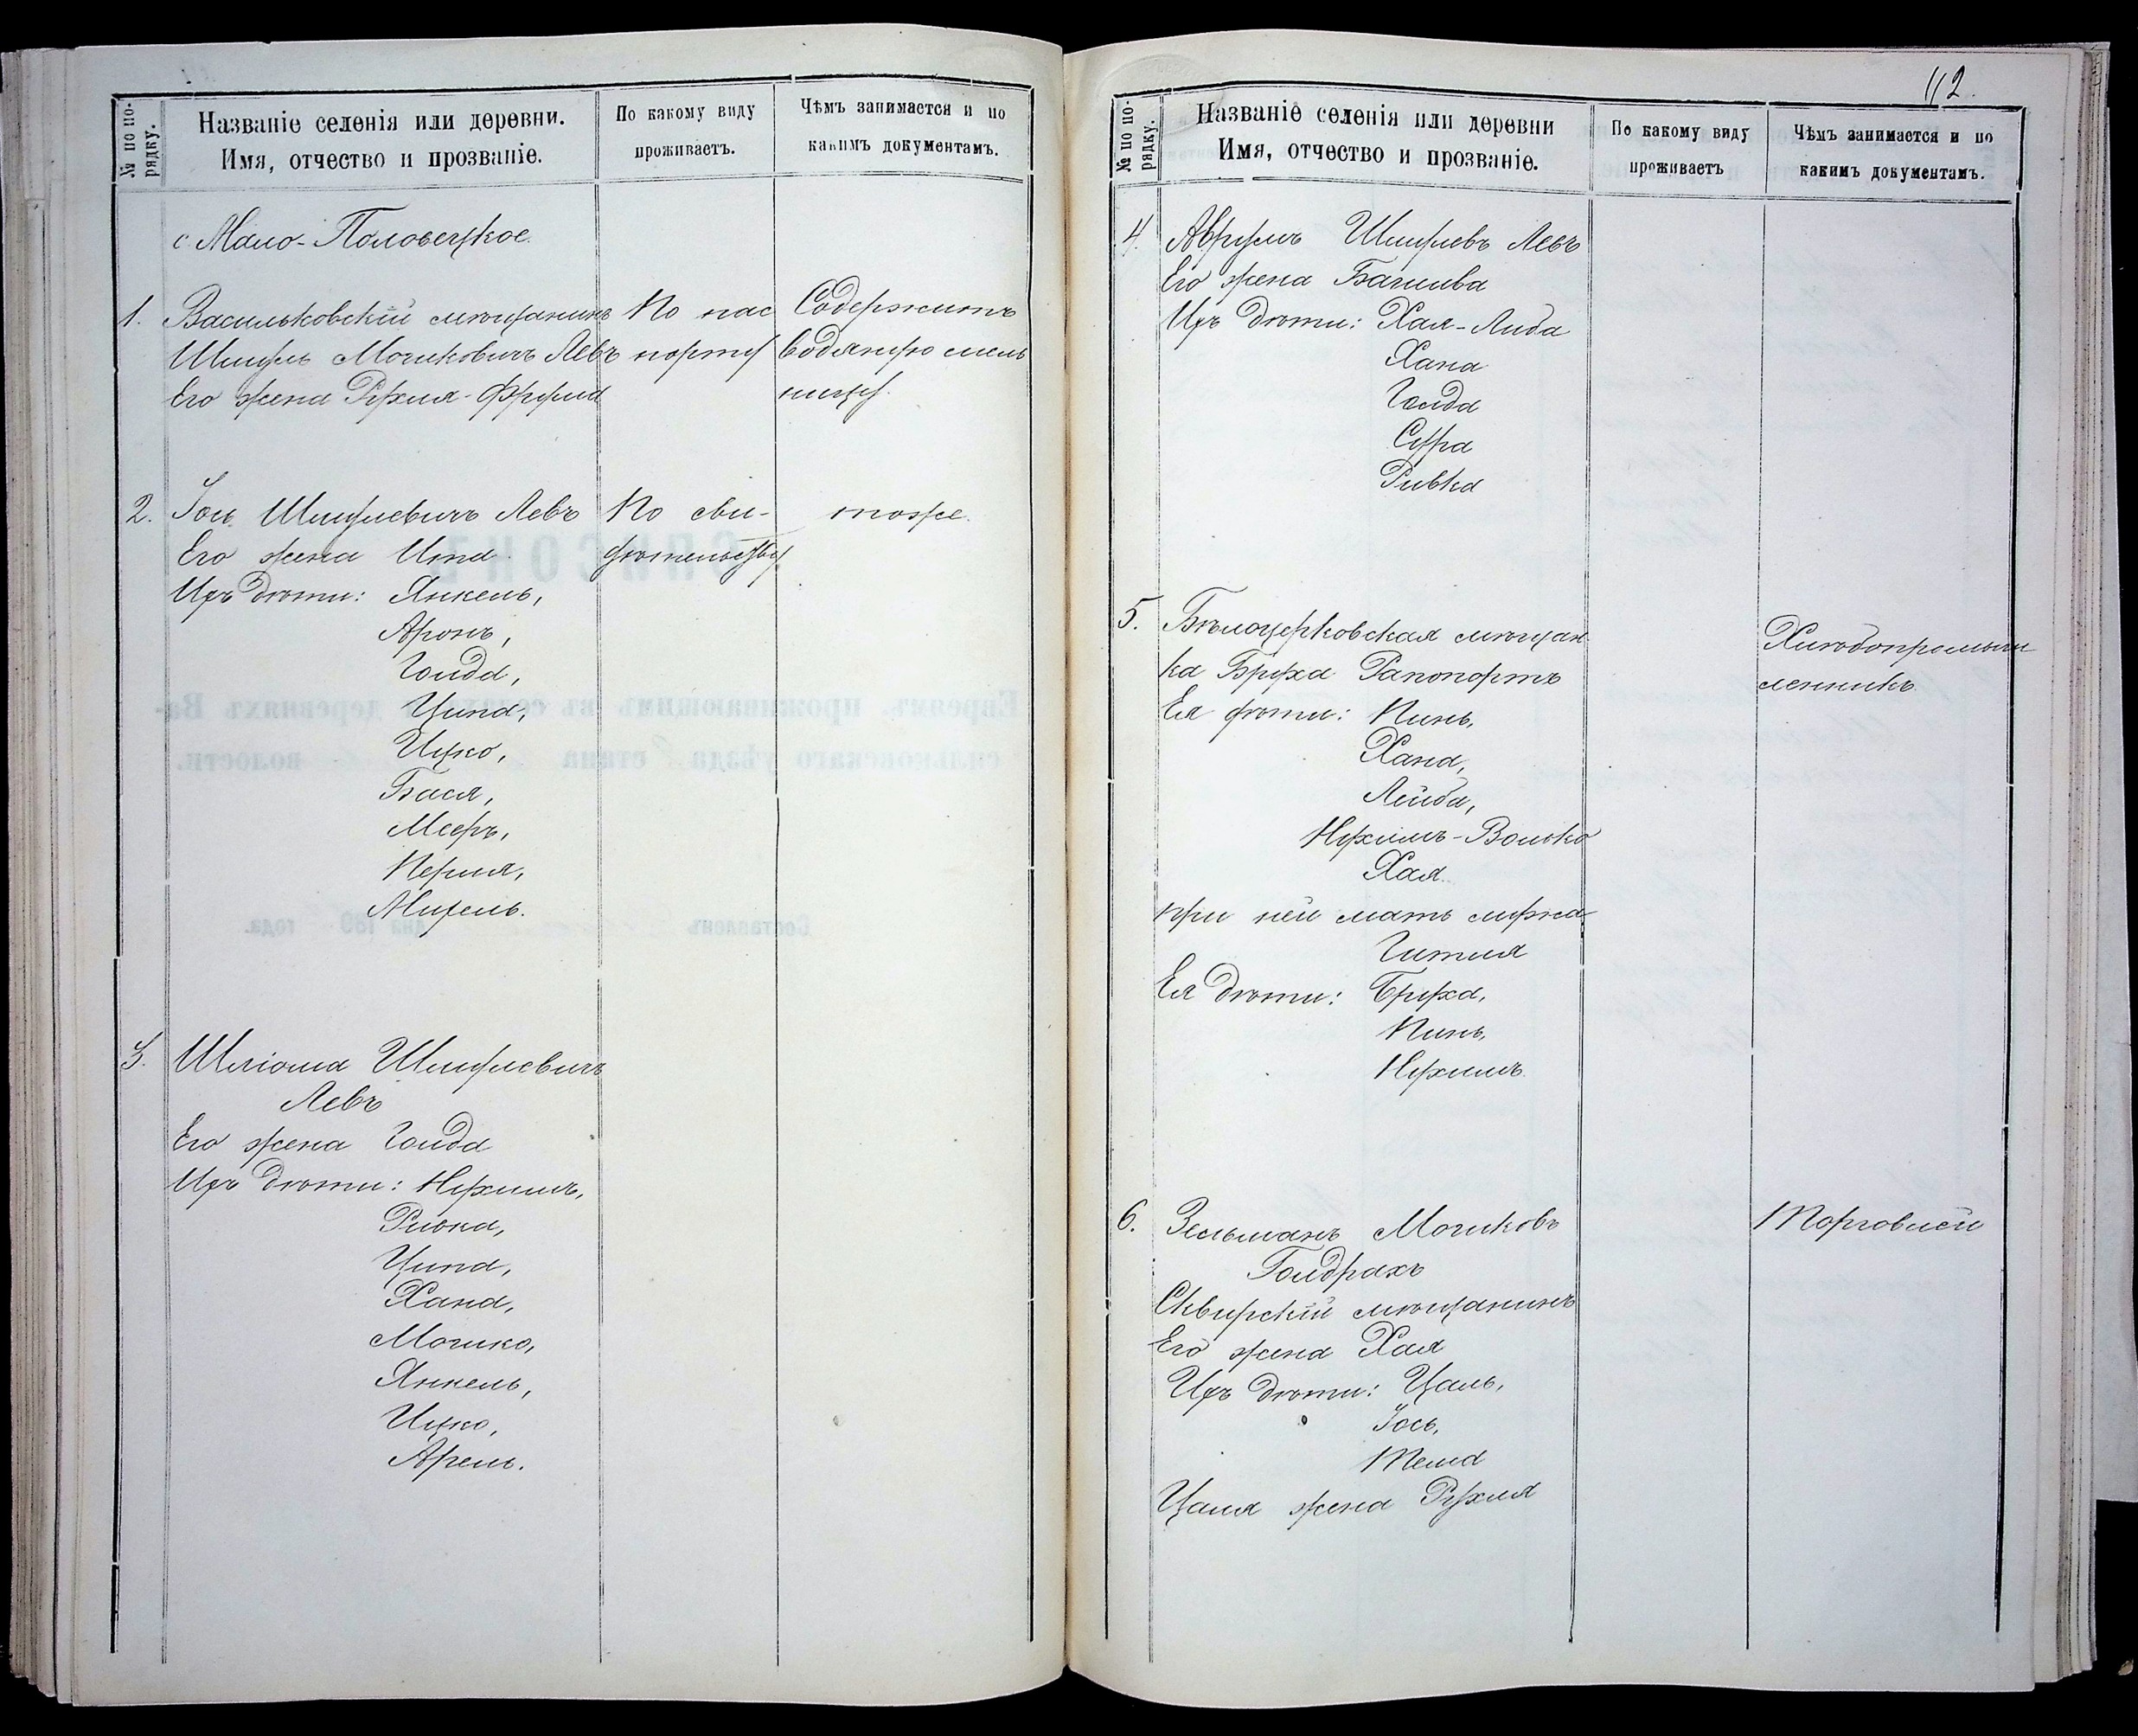 № по по-
рядку.
Названіе селенія или деревни.
Имя, отчество и прозваніе.
По какому виду
проживаетъ.
Чѣмъ занимается и по
какимъ документамъ.
с. Мало-Половецкое.
1. Васильковскій мѣщанинъ По пас Содержитъ
Шмуль Мошковичъ Левъ порту водяную мель
Его жена Рухля-Фрума ницу.
2. Іось Шмулевичъ Левъ По сви- тоже.
Его жена Ита дѣтельству
Ихъ дѣти: Янкель,
Аронъ,
Голда,
Ципа,
Ицко,
Бася,
Мееръ,
Перля,
Мирель.
3. Шліома Шмулевичъ
Левъ
Его жена Голда
Ихъ дѣти: Нухимъ,
Ривка,
Ципа,
Хана,
Мошко,
Янкель,
Ицко,
Арель.
112.
№ по по-
рядку.
Названіе селенія или деревни
Имя, отчество и прозваніе.
По какому виду
проживаетъ
Чѣмъ занимается и по
какимъ документамъ.
4. Аврумъ Шмулевъ Левъ
Его жена Башива
Ихъ дѣти: Хая-Либа
Хана
Голда
Сура
Ривка
5. Бѣлоцерковская мѣщан Хлѣбопромыш
ка Бруха Рапопортъ ленникъ
Ея дѣти: Пинь,
Хана,
Лейба,
Нухимъ-Волько
Хая.
При ней мать мужа
Гитля
Ея дѣти: Бруха,
Пинь,
Нухимъ.
6. Зельманъ Мошковъ Торговлей
Голдрахъ
Сквирскій мѣщанинъ
Его жена Хая
Ихъ дѣти: Цаль,
Іось,
Тема
Цаля жена Рухля